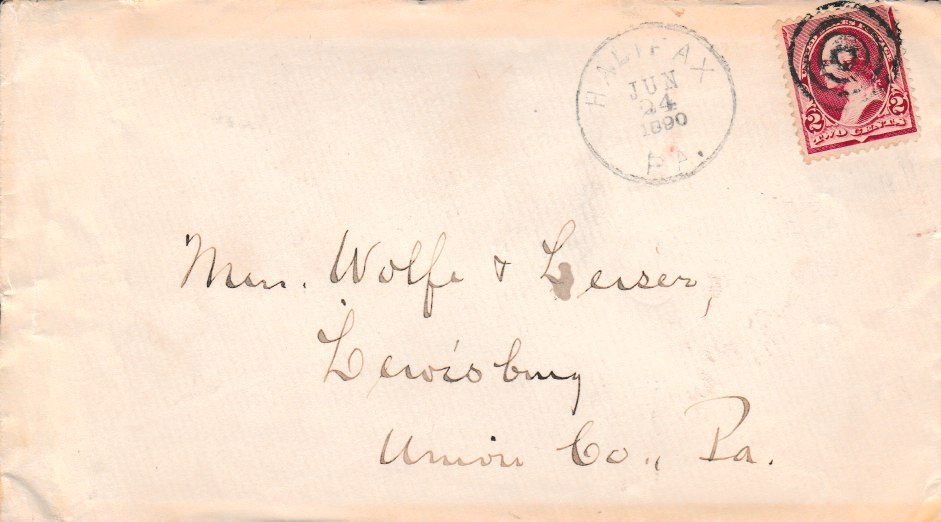 HALIFAX
JUN
24
1890
PA.
2 2
TWO CENTS
Mess. Wolfe & Leiser,
Lewisburg
Union Co., Pa.